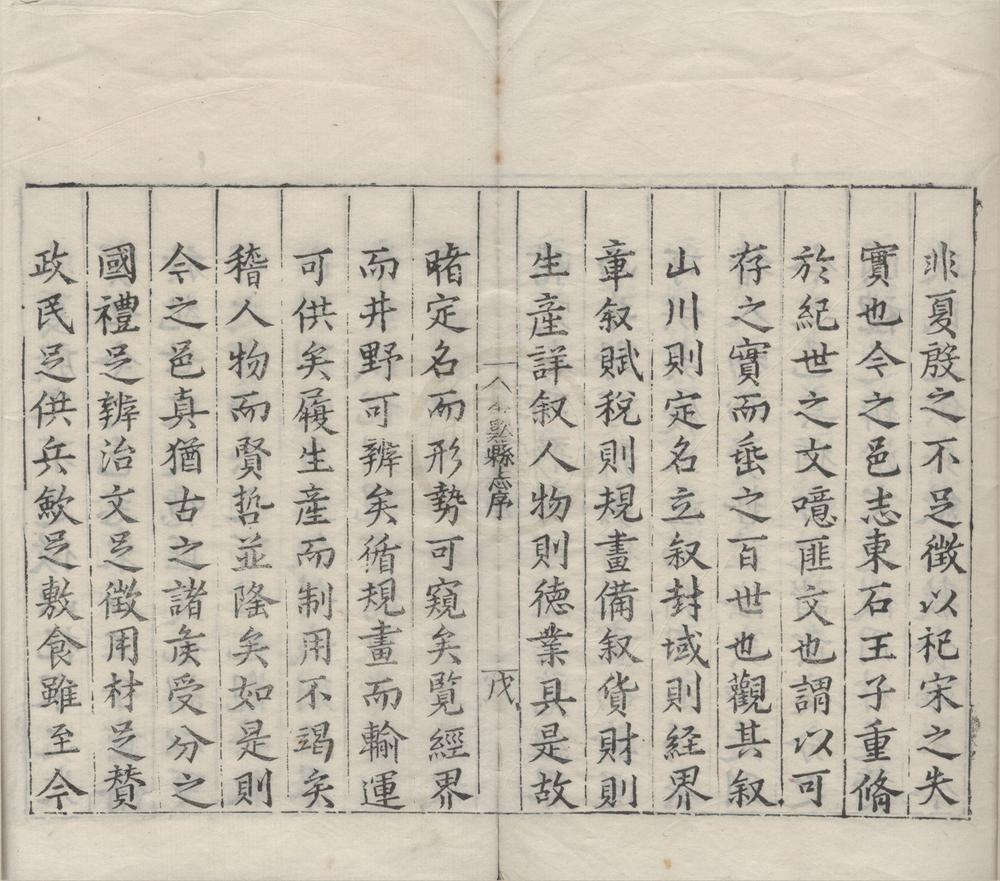 非夏殷之不足徵以祀宋之失
實也今之邑志東石王子重脩
於紀世之文噫匪文也謂以可
存之實而垂之百世也觀其叙
山川則定名立叙封域則経界
章叙賦稅則規畫備叙貨財則
生產詳叙人物則德業具是故
縣志序
睹定名而形勢可窺矣覧經界
而井野可辨矣循規畫而輸運
可供矣履生產而制用不竭矣
稽人物而賢哲並隆矣如是則
今之邑真猶古之諸矦受分之
國禮足辨治文足徵用材足賛
政民足供兵歛足敷食雖至今